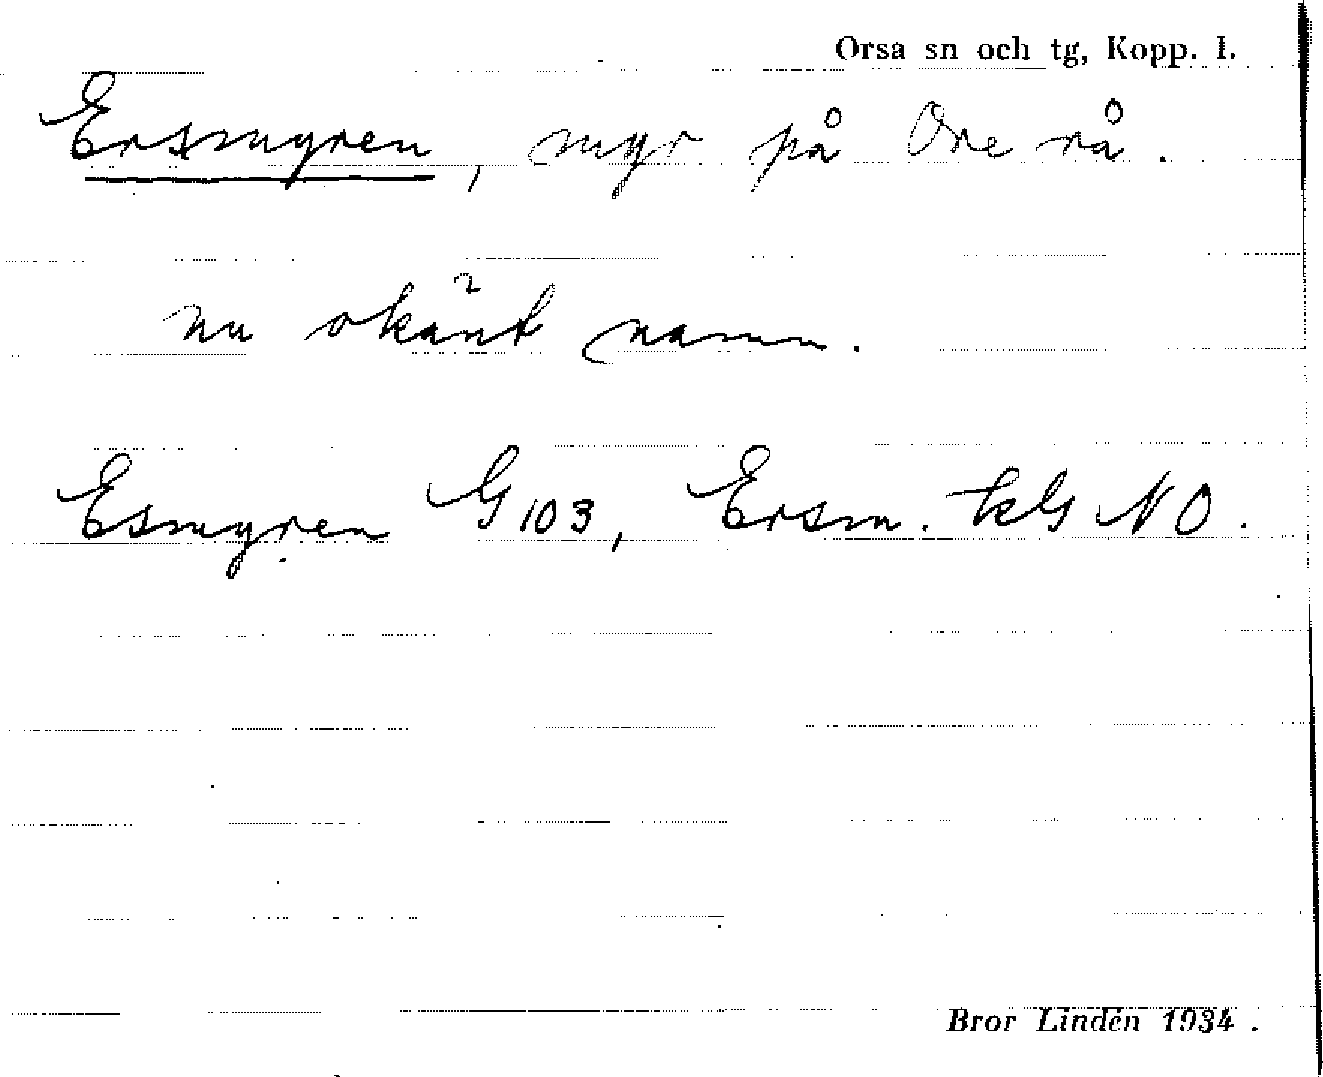 Orsa sn och tg, Kopp. l.
Ersmyren, myr på Ore rå.
nu okänt namn.
Esmyren G 103, Ersm. kG NO.
Bror Lindén 1934.